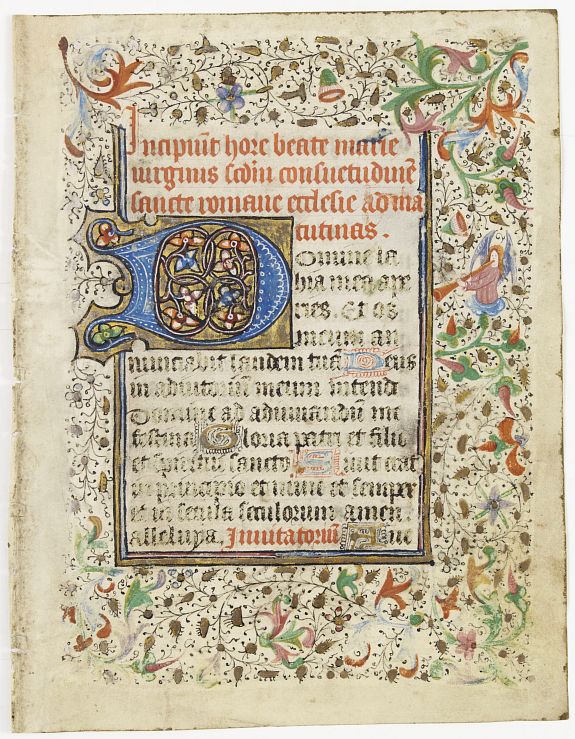 Incipiũt hore beate marie
virginis scdm consuetudinẽ
sancte romane ecclesie ad ma
tutinas.
Domine la
bia mea ape
ries. Et os
meum an
nunciabit laudem tuã Deus
in adiutoriũ meum intende
Domine ad adiuuandũ me
festina Gloria patri et filio
et spiritui sancto Sicut erat
in principio et nunc et semper
et in secula seculorum amen
alleluya. Inuitatoriũ Aue